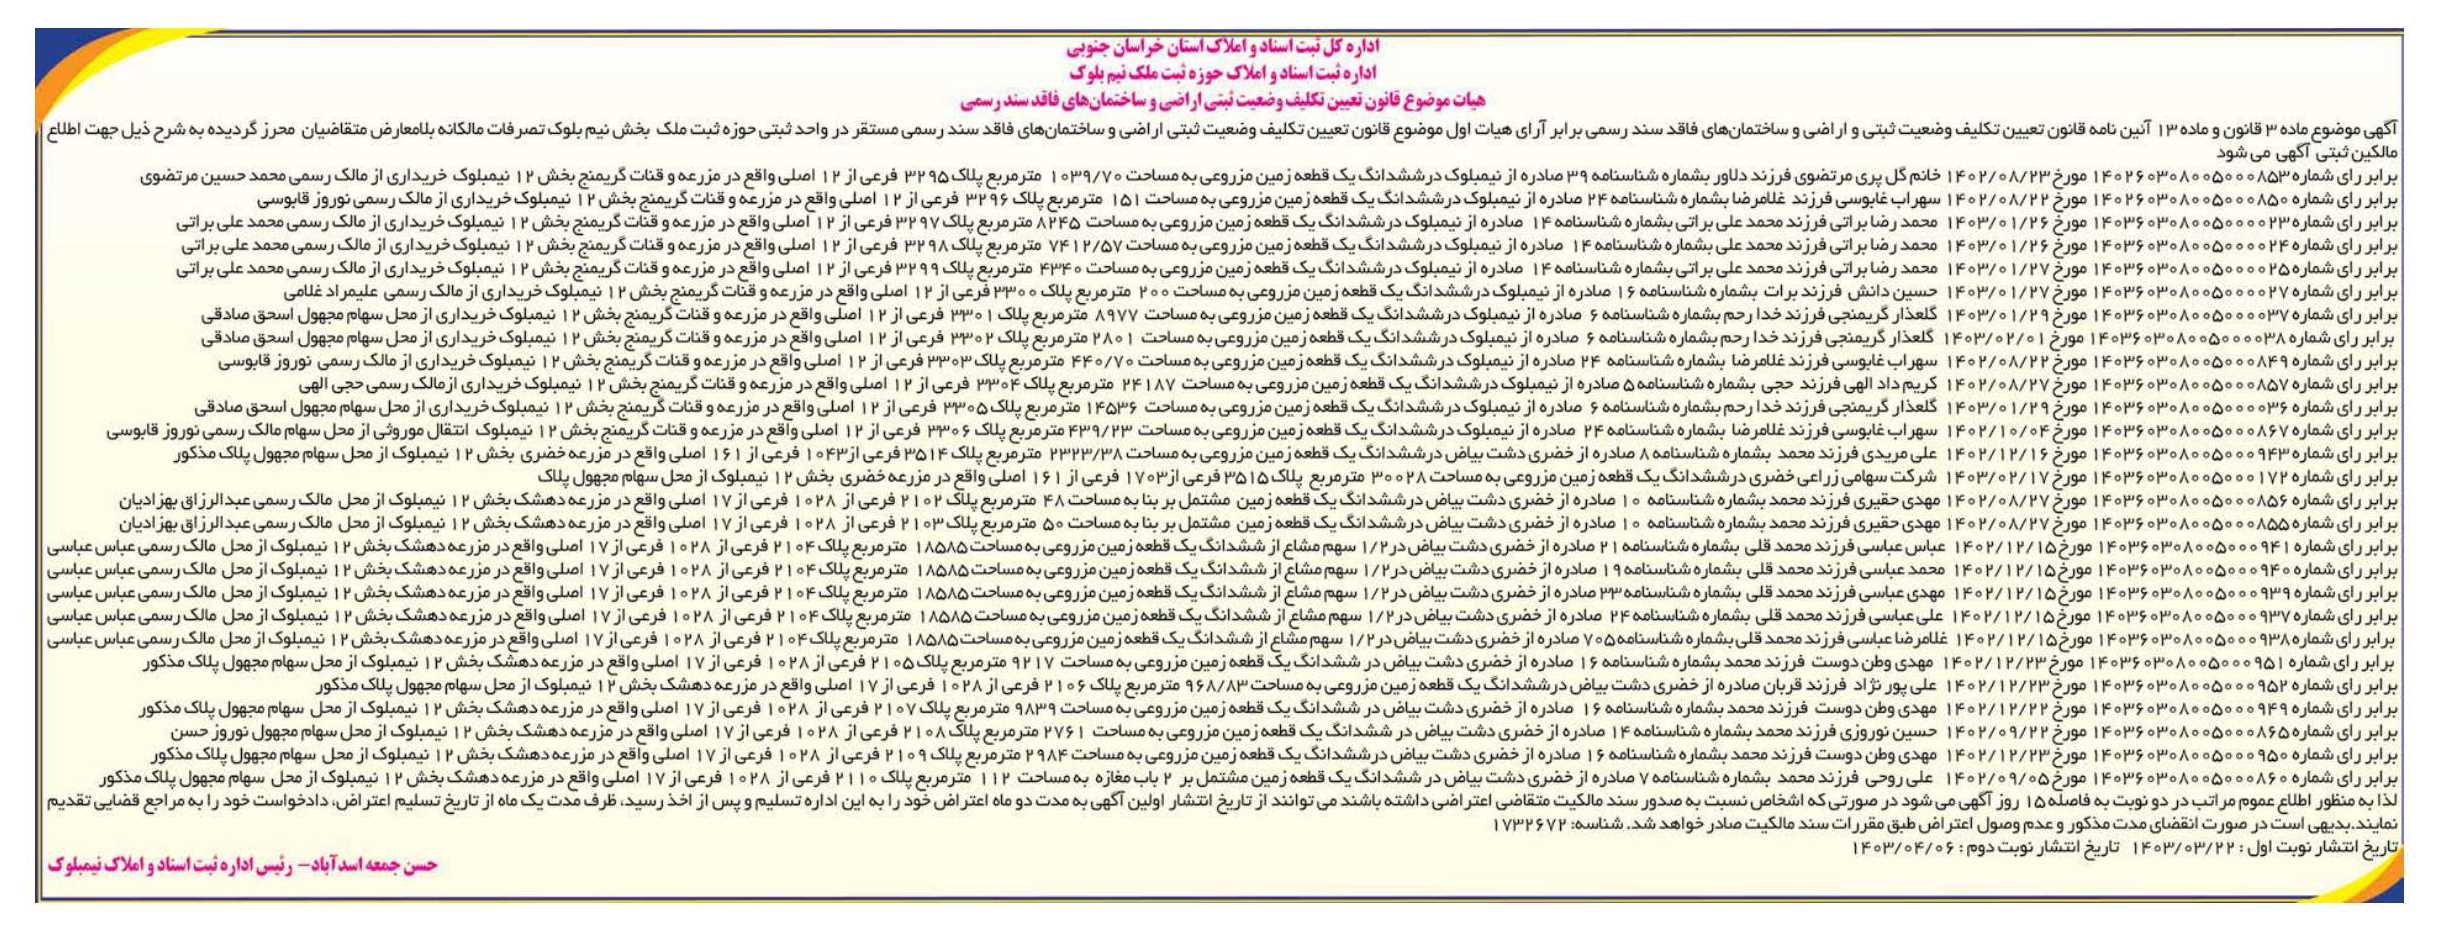 اداره کل ثبت اسناد و املاک استان خراسان جنوبی
اداره ثبت اسناد و املاک حوزه ثبت ملک نیم بلوک
هیات موضوع قانون تعیین تکلیف وضعیت ثبتی اراضی و ساختمان‌های فاقد سند رسمی
آگهی موضوع ماده ۳ قانون و ماده ۱۳ آئین نامه قانون تعیین تکلیف وضعیت ثبتی و اراضی و ساختمان‌های فاقد سند رسمی برابر آرای هیات اول موضوع قانون تعیین تکلیف وضعیت ثبتی اراضی و ساختمان‌های فاقد سند رسمی مستقر در واحد ثبتی حوزه ثبت ملک بخش نیم بلوک تصرفات مالکانه بلامعارض متقاضیان محرز گردیده به شرح ذیل جهت اطلاع
مالکین ثبتی آگهی می شود
برابر رای شماره ۱۴۰۲۶۰۳۰۸۰۰۵۰۰۰۸۵۳ مورخ ۱۴۰۲/۰۸/۲۳ خانم گل پری مرتضوی فرزند دلاور بشماره شناسنامه ۳۹ صادره از نیمبلوک درششدانگ یک قطعه زمین مزروعی به مساحت ۱۰۳۹/۷۰ مترمربع پلاک ۳۲۹۵ فرعی از ۱۲ اصلی واقع در مزرعه و قنات گریمنج بخش ۱۲ نیمبلوک خریداری از مالک رسمی محمد حسین مرتضوی
برابر رای شماره ۱۴۰۲۶۰۳۰۸۰۰۵۰۰۰۸۵۰ مورخ ۱۴۰۲/۰۸/۲۲ سهراب غابوسی فرزند غلامرضا بشماره شناسنامه ۲۴ صادره از نیمبلوک درششدانگ یک قطعه زمین مزروعی به مساحت ۱۵۱ مترمربع پلاک ۳۲۹۶ فرعی از ۱۲ اصلی واقع در مزرعه و قنات گریمنج بخش ۱۲ نیمبلوک خریداری از مالک رسمی نوروز قابوسی
برابر رای شماره ۱۴۰۳۶۰۳۰۸۰۰۵۰۰۰۰۲۳ مورخ ۱۴۰۳/۰۱/۲۶ محمد رضا براتی فرزند محمد علی براتی بشماره شناسنامه ۱۴ صادره از نیمبلوک درششدانگ یک قطعه زمین مزروعی به مساحت ۸۲۴۵ مترمربع پلاک ۳۲۹۷ فرعی از ۱۲ اصلی واقع در مزرعه و قنات گریمنج بخش ۱۲ نیمبلوک خریداری از مالک رسمی محمد علی براتی
برابر رای شماره ۱۴۰۳۶۰۳۰۸۰۰۵۰۰۰۰۲۴ مورخ ۱۴۰۳/۰۱/۲۶ محمد رضا براتی فرزند محمد علی بشماره شناسنامه ۱۴ صادره از نیمبلوک درششدانگ یک قطعه زمین مزروعی به مساحت ۷۴۱۲/۵۷ مترمربع پلاک ۳۲۹۸ فرعی از ۱۲ اصلی واقع در مزرعه و قنات گریمنج بخش ۱۲ نیمبلوک خریداری از مالک رسمی محمد علی براتی
برابر رای شماره ۱۴۰۳۶۰۳۰۸۰۰۵۰۰۰۰۲۵ مورخ ۱۴۰۳/۰۱/۲۷ محمد رضا براتی فرزند محمد علی براتی بشماره شناسنامه ۱۴ صادره از نیمبلوک درششدانگ یک قطعه زمین مزروعی به مساحت ۴۳۴۰ مترمربع پلاک ۳۲۹۹ فرعی از ۱۲ اصلی واقع در مزرعه و قنات گریمنج بخش ۱۲ نیمبلوک خریداری از مالک رسمی محمد علی براتی
برابر رای شماره ۱۴۰۳۶۰۳۰۸۰۰۵۰۰۰۰۲۷ مورخ ۱۴۰۳/۰۱/۲۷ حسین دانش فرزند برات بشماره شناسنامه ۱۶ صادره از نیمبلوک درششدانگ یک قطعه زمین مزروعی به مساحت ۲۰۰ مترمربع پلاک ۳۳۰۰ فرعی از ۱۲ اصلی واقع در مزرعه و قنات گریمنج بخش ۱۲ نیمبلوک خریداری از مالک رسمی علیمراد غلامی
برابر رای شماره ۱۴۰۳۶۰۳۰۸۰۰۵۰۰۰۰۳۷ مورخ ۱۴۰۳/۰۱/۲۹ گلعذار گریمنجی فرزند خدا رحم بشماره شناسنامه ۶ صادره از نیمبلوک درششدانگ یک قطعه زمین مزروعی به مساحت ۸۹۷۷ مترمربع پلاک ۳۳۰۱ فرعی از ۱۲ اصلی واقع در مزرعه و قنات گریمنج بخش ۱۲ نیمبلوک خریداری از محل سهام مجهول اسحق صادقی
برابر رای شماره ۱۴۰۳۶۰۳۰۸۰۰۵۰۰۰۰۳۸ مورخ ۱۴۰۳/۰۲/۰۱ گلعذار گریمنجی فرزند خدا رحم بشماره شناسنامه ۶ صادره از نیمبلوک درششدانگ یک قطعه زمین مزروعی به مساحت ۲۸۰۱ مترمربع پلاک ۳۳۰۲ فرعی از ۱۲ اصلی واقع در مزرعه و قنات گریمنج بخش ۱۲ نیمبلوک خریداری از محل سهام مجهول اسحق صادقی
برابر رای شماره ۱۴۰۳۶۰۳۰۸۰۰۵۰۰۰۸۴۹ مورخ ۱۴۰۲/۰۸/۲۲ سهراب غابوسی فرزند غلامرضا بشماره شناسنامه ۲۴ صادره از نیمبلوک درششدانگ یک قطعه زمین مزروعی به مساحت ۴۴۰/۷۰ مترمربع پلاک ۳۳۰۳ فرعی از ۱۲ اصلی واقع در مزرعه و قنات گریمنج بخش ۱۲ نیمبلوک خریداری از مالک رسمی نوروز قابوسی
برابر رای شماره ۱۴۰۳۶۰۳۰۸۰۰۵۰۰۰۸۵۷ مورخ ۱۴۰۲/۰۸/۲۷ کریم داد الهی فرزند حجی بشماره شناسنامه ۵ صادره از نیمبلوک درششدانگ یک قطعه زمین مزروعی به مساحت ۲۴۱۸۷ مترمربع پلاک ۳۳۰۴ فرعی از ۱۲ اصلی واقع در مزرعه و قنات گریمنج بخش ۱۲ نیمبلوک خریداری ازمالک رسمی حجی الهی
برابر رای شماره ۱۴۰۳۶۰۳۰۸۰۰۵۰۰۰۰۳۶ مورخ ۱۴۰۳/۰۱/۲۹ گلعذار گریمنجی فرزند خدا رحم بشماره شناسنامه ۶ صادره از نیمبلوک درششدانگ یک قطعه زمین مزروعی به مساحت ۱۴۵۳۶ مترمربع پلاک ۳۳۰۵ فرعی از ۱۲ اصلی واقع در مزرعه و قنات گریمنج بخش ۱۲ نیمبلوک خریداری از محل سهام مجهول اسحق صادقی
برابر رای شماره ۱۴۰۳۶۰۳۰۸۰۰۵۰۰۰۸۶۷ مورخ ۱۴۰۲/۱۰/۰۴ سهراب غابوسی فرزند غلامرضا بشماره شناسنامه ۲۴ صادره از نیمبلوک درششدانگ یک قطعه زمین مزروعی به مساحت ۴۳۹/۲۳ مترمربع پلاک ۳۳۰۶ فرعی از ۱۲ اصلی واقع در مزرعه و قنات گریمنج بخش ۱۲ نیمبلوک انتقال موروثی از محل سهام مالک رسمی نوروز قابوسی
برابر رای شماره ۱۴۰۳۶۰۳۰۸۰۰۵۰۰۰۹۴۳ مورخ ۱۴۰۲/۱۲/۱۶ علی مریدی فرزند محمد بشماره شناسنامه ۸ صادره از خضری دشت بیاض درششدانگ یک قطعه زمین مزروعی به مساحت ۲۳۲۳/۳۸ مترمربع پلاک ۳۵۱۴ فرعی از ۱۰۴۳ فرعی از ۱۶۱ اصلی واقع در مزرعه خضری بخش ۱۲ نیمبلوک از محل سهام مجهول پلاک مذکور
برابر رای شماره ۱۴۰۳۶۰۳۰۸۰۰۵۰۰۰۱۷۲ مورخ ۱۴۰۳/۰۲/۱۷ شرکت سهامی زراعی خضری درششدانگ یک قطعه زمین مزروعی به مساحت ۳۰۰۲۸ مترمربع پلاک ۳۵۱۵ فرعی از ۱۷۰۳ فرعی از ۱۶۱ اصلی واقع در مزرعه خضری بخش ۱۲ نیمبلوک از محل سهام مجهول پلاک
برابر رای شماره ۱۴۰۳۶۰۳۰۸۰۰۵۰۰۰۸۵۶ مورخ ۱۴۰۲/۰۸/۲۷ مهدی حقیری فرزند محمد بشماره شناسنامه ۱۰ صادره از خضری دشت بیاض درششدانگ یک قطعه زمین مشتمل بر بنا به مساحت ۴۸ مترمربع پلاک ۲۱۰۲ فرعی از ۱۰۲۸ فرعی از ۱۷ اصلی واقع در مزرعه دهشک بخش ۱۲ نیمبلوک از محل مالک رسمی عبدالرزاق بهزادیان
برابر رای شماره ۱۴۰۳۶۰۳۰۸۰۰۵۰۰۰۸۵۵ مورخ ۱۴۰۲/۰۸/۲۷ مهدی حقیری فرزند محمد بشماره شناسنامه ۱۰ صادره از خضری دشت بیاض درششدانگ یک قطعه زمین مشتمل بر بنا به مساحت ۵۰ مترمربع پلاک ۲۱۰۳ فرعی از ۱۰۲۸ فرعی از ۱۷ اصلی واقع در مزرعه دهشک بخش ۱۲ نیمبلوک از محل مالک رسمی عبدالرزاق بهزادیان
برابر رای شماره ۱۴۰۳۶۰۳۰۸۰۰۵۰۰۰۹۴۱ مورخ ۱۴۰۲/۱۲/۱۵ عباس عباسی فرزند محمد قلی بشماره شناسنامه ۲۱ صادره از خضری دشت بیاض در ۱/۲ سهم مشاع از ششدانگ یک قطعه زمین مزروعی به مساحت ۱۸۵۸۵ مترمربع پلاک ۲۱۰۴ فرعی از ۱۰۲۸ فرعی از ۱۷ اصلی واقع در مزرعه دهشک بخش ۱۲ نیمبلوک از محل مالک رسمی عباس عباسی
برابر رای شماره ۱۴۰۳۶۰۳۰۸۰۰۵۰۰۰۹۴۰ مورخ ۱۴۰۲/۱۲/۱۵ محمد عباسی فرزند محمد قلی بشماره شناسنامه ۱۹ صادره از خضری دشت بیاض در ۱/۲ سهم مشاع از ششدانگ یک قطعه زمین مزروعی به مساحت ۱۸۵۸۵ مترمربع پلاک ۲۱۰۴ فرعی از ۱۰۲۸ فرعی از ۱۷ اصلی واقع در مزرعه دهشک بخش ۱۲ نیمبلوک از محل مالک رسمی عباس عباسی
برابر رای شماره ۱۴۰۳۶۰۳۰۸۰۰۵۰۰۰۹۳۹ مورخ ۱۴۰۲/۱۲/۱۵ مهدی عباسی فرزند محمد قلی بشماره شناسنامه ۳۳ صادره از خضری دشت بیاض در ۱/۲ سهم مشاع از ششدانگ یک قطعه زمین مزروعی به مساحت ۱۸۵۸۵ مترمربع پلاک ۲۱۰۴ فرعی از ۱۰۲۸ فرعی از ۱۷ اصلی واقع در مزرعه دهشک بخش ۱۲ نیمبلوک از محل مالک رسمی عباس عباسی
برابر رای شماره ۱۴۰۳۶۰۳۰۸۰۰۵۰۰۰۹۳۷ مورخ ۱۴۰۲/۱۲/۱۵ علی عباسی فرزند محمد قلی بشماره شناسنامه ۲۴ صادره از خضری دشت بیاض در ۱/۲ سهم مشاع از ششدانگ یک قطعه زمین مزروعی به مساحت ۱۸۵۸۵ مترمربع پلاک ۲۱۰۴ فرعی از ۱۰۲۸ فرعی از ۱۷ اصلی واقع در مزرعه دهشک بخش ۱۲ نیمبلوک از محل مالک رسمی عباس عباسی
برابر رای شماره ۱۴۰۳۶۰۳۰۸۰۰۵۰۰۰۹۳۸ مورخ ۱۴۰۲/۱۲/۱۵ غلامرضا عباسی فرزند محمد قلی بشماره شناسنامه ۷۰۵ صادره از خضری دشت بیاض در ۱/۲ سهم مشاع از ششدانگ یک قطعه زمین مزروعی به مساحت ۱۸۵۸۵ مترمربع پلاک ۲۱۰۴ فرعی از ۱۰۲۸ فرعی از ۱۷ اصلی واقع در مزرعه دهشک بخش ۱۲ نیمبلوک از محل مالک رسمی عباس عباسی
برابر رای شماره ۱۴۰۳۶۰۳۰۸۰۰۵۰۰۰۹۵۱ مورخ ۱۴۰۲/۱۲/۲۳ مهدی وطن دوست فرزند محمد بشماره شناسنامه ۱۶ صادره از خضری دشت بیاض در ششدانگ یک قطعه زمین مزروعی به مساحت ۹۲۱۷ مترمربع پلاک ۲۱۰۵ فرعی از ۱۰۲۸ فرعی از ۱۷ اصلی واقع در مزرعه دهشک بخش ۱۲ نیمبلوک از محل سهام مجهول پلاک مذکور
برابر رای شماره ۱۴۰۳۶۰۳۰۸۰۰۵۰۰۰۹۵۲ مورخ ۱۴۰۲/۱۲/۲۳ علی پور نژاد فرزند قربان صادره از خضری دشت بیاض درششدانگ یک قطعه زمین مزروعی به مساحت ۹۶۸/۸۳ مترمربع پلاک ۲۱۰۶ فرعی از ۱۰۲۸ فرعی از ۱۷ اصلی واقع در مزرعه دهشک بخش ۱۲ نیمبلوک از محل سهام مجهول پلاک مذکور
برابر رای شماره ۱۴۰۳۶۰۳۰۸۰۰۵۰۰۰۹۴۹ مورخ ۱۴۰۲/۱۲/۲۲ مهدی وطن دوست فرزند محمد بشماره شناسنامه ۱۶ صادره از خضری دشت بیاض در ششدانگ یک قطعه زمین مزروعی به مساحت ۹۸۳۹ مترمربع پلاک ۲۱۰۷ فرعی از ۱۰۲۸ فرعی از ۱۷ اصلی واقع در مزرعه دهشک بخش ۱۲ نیمبلوک از محل سهام مجهول پلاک مذکور
برابر رای شماره ۱۴۰۳۶۰۳۰۸۰۰۵۰۰۰۸۶۵ مورخ ۱۴۰۲/۰۹/۲۲ حسین نوروزی فرزند محمد بشماره شناسنامه ۱۴ صادره از خضری دشت بیاض در ششدانگ یک قطعه زمین مزروعی به مساحت ۲۷۶۱ مترمربع پلاک ۲۱۰۸ فرعی از ۱۰۲۸ فرعی از ۱۷ اصلی واقع در مزرعه دهشک بخش ۱۲ نیمبلوک از محل سهام مجهول نوروز حسن
برابر رای شماره ۱۴۰۳۶۰۳۰۸۰۰۵۰۰۰۹۵۰ مورخ ۱۴۰۲/۱۲/۲۳ مهدی وطن دوست فرزند محمد بشماره شناسنامه ۱۶ صادره از خضری دشت بیاض درششدانگ یک قطعه زمین مزروعی به مساحت ۲۹۸۴ مترمربع پلاک ۲۱۰۹ فرعی از ۱۰۲۸ فرعی از ۱۷ اصلی واقع در مزرعه دهشک بخش ۱۲ نیمبلوک از محل سهام مجهول پلاک مذکور
برابر رای شماره ۱۴۰۳۶۰۳۰۸۰۰۵۰۰۰۸۶۰ مورخ ۱۴۰۲/۰۹/۰۵ علی روحی فرزند محمد بشماره شناسنامه ۷ صادره از خضری دشت بیاض در ششدانگ یک قطعه زمین مشتمل بر ۲ باب مغازه به مساحت ۱۱۲ مترمربع پلاک ۲۱۱۰ فرعی از ۱۰۲۸ فرعی از ۱۷ اصلی واقع در مزرعه دهشک بخش ۱۲ نیمبلوک از محل سهام مجهول پلاک مذکور
لذا به منظور اطلاع عموم مراتب در دو نوبت به فاصله ۱۵ روز آگهی می شود در صورتی که اشخاص نسبت به صدور سند مالکیت متقاضی اعتراضی داشته باشند می توانند از تاریخ انتشار اولین آگهی به مدت دو ماه اعتراض خود را به این اداره تسلیم و پس از اخذ رسید، ظرف مدت یک ماه از تاریخ تسلیم اعتراض، دادخواست خود را به مراجع قضایی تقدیم
نمایند.بدیهی است در صورت انقضای مدت مذکور و عدم وصول اعتراض طبق مقررات سند مالکیت صادر خواهد شد. شناسه: ۱۷۳۲۶۷۲
تاریخ انتشار نوبت اول : ۱۴۰۳/۰۳/۲۲ تاریخ انتشار نوبت دوم : ۱۴۰۳/۰۴/۰۶
حسن جمعه اسدآباد– رئیس اداره ثبت اسناد و املاک نیمبلوک